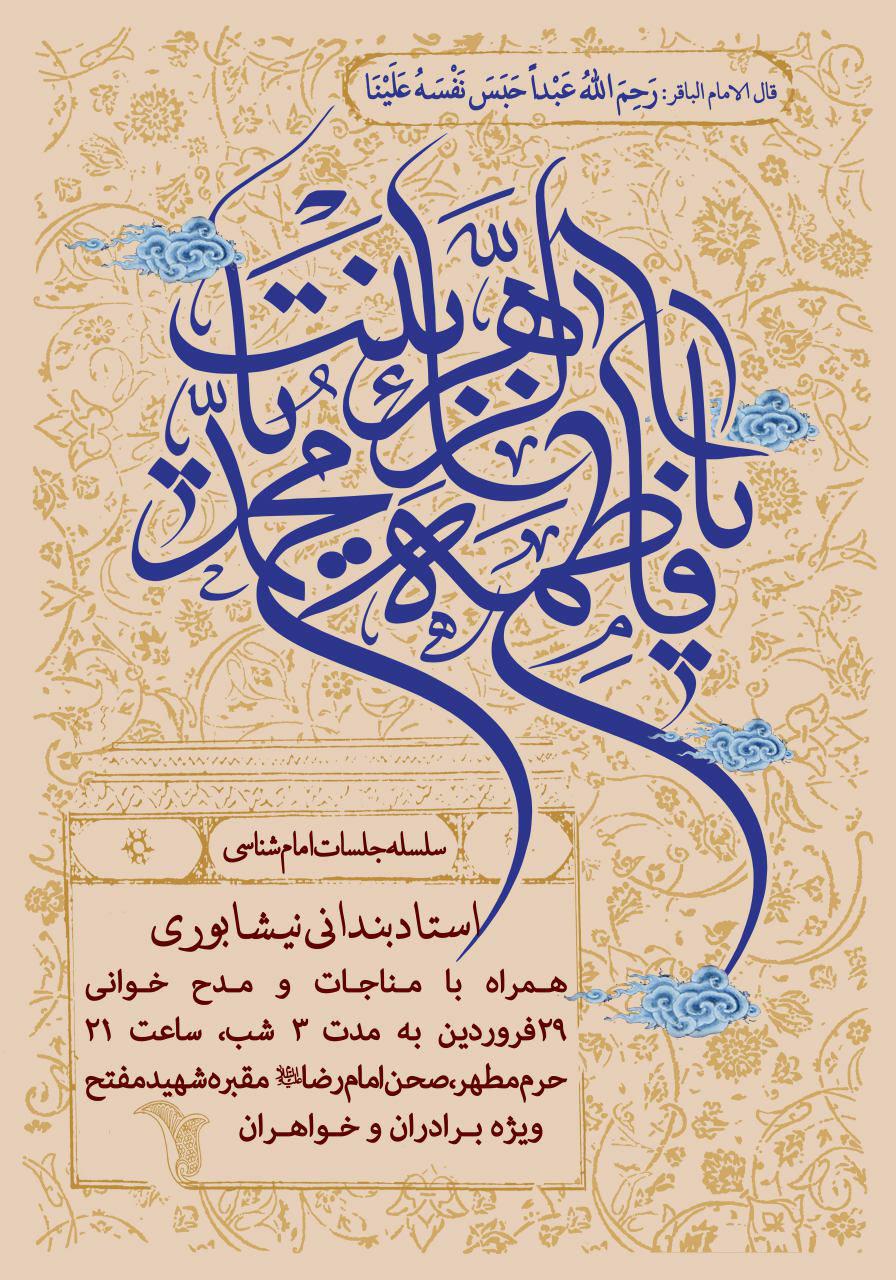 قال الامام الباقر: رَحِمَ اللهُ عَبْداً حَبَسَ نَفْسَهُ عَلَيْنَا
يا فاطمة الزهراء يا بنت محمد
سلسله جلسات امام شناسی
استاد بندانی نیشابوری
همراه با مناجات و مدح خوانی
۲۹فروردین به مدت ۳ شب، ساعت ۲۱
حرم مطهر، صحن امام رضا علیه‌السلام مقبره شهید مفتح
ویژه برادران و خواهران